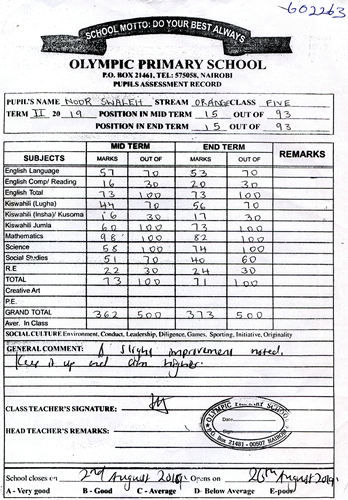 602263
SCHOOL MOTTO: DO YOUR BEST ALWAYS
OLYMPIC PRIMARY SCHOOL
P.O. BOX 21461, TEL: 575058, NAIROBI
PUPILS ASSESSMENT RECORD
PUPIL'S NAME NOOR SWALEH STREAM ORANGE CLASS FIVE
TERM II 20 19 POSITION IN MID TERM 15 OUT OF 93
POSITION IN END TERM 15 OUT OF 93
MID TERM END TERM REMARKS
SUBJECTS MARKS OUT OF MARKS OUT OF
English Language 57 70 53 70
English Comp/ Reading 16 30 20 30
English Total 73 100 73 100
Kiswahili (Lugha) 44 70 56 70
Kiswahili (Insha)/ Kusoma 16 30 17 30
Kiswahili Jumla 60 100 73 100
Mathematics 98 100 82 100
Science 58 100 74 100
Social Studies 51 70 40 60
R.E 22 30 24 30
TOTAL 73 100 71 100
Creative Art
P.E.
GRAND TOTAL 362 500 373 500
Aver. In Class
SOCIAL CULTURE Environment, Conduct, Leadership, Diligence, Games, Sporting, Initiative, Originality
GENERAL COMMENT: A slight improvement noted.
Keep it up and aim higher.
CLASS TEACHER'S SIGNATURE:
HEAD TEACHER'S REMARKS:
OLYMPIC PRIMARY SCHOOL
Date
Sign
P.O. Box 21461 - 00507 NAIROBI
School closes on 2nd August 2019 Opens on 26th August 2019
A - Very good B - Good C - Average D- Below Average E-poor